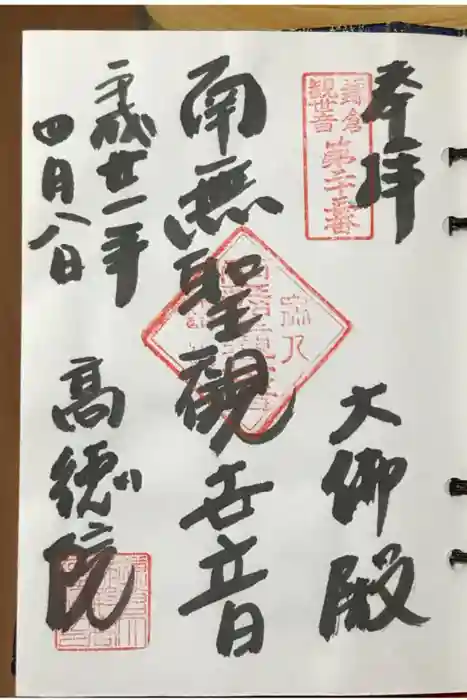 奉拝
大御殿
鎌倉
観世音
第二十三番
南無聖觀世音
平成廿一年
四月八日
高徳院